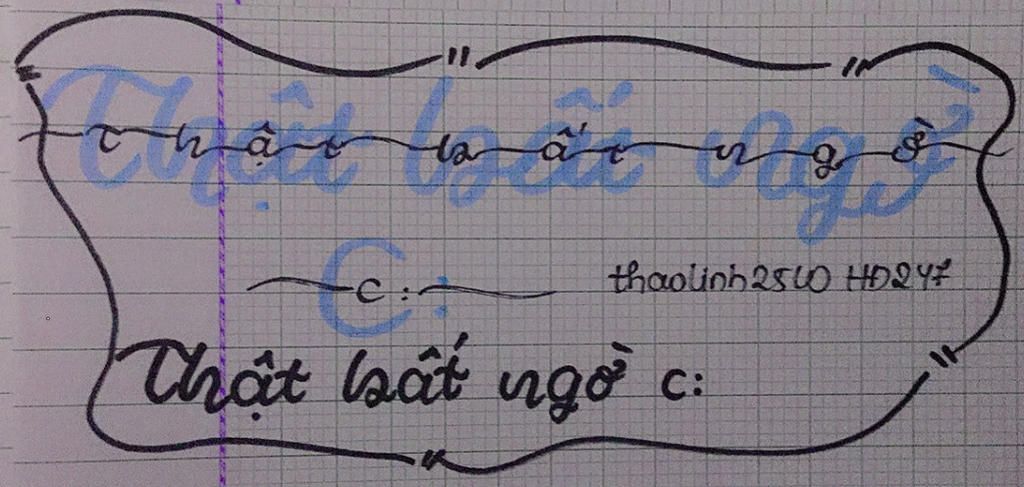 Thật bất ngờ
thật bất ngờ
C:
c: thaolinh2510 HD247
Thật bất ngờ c: